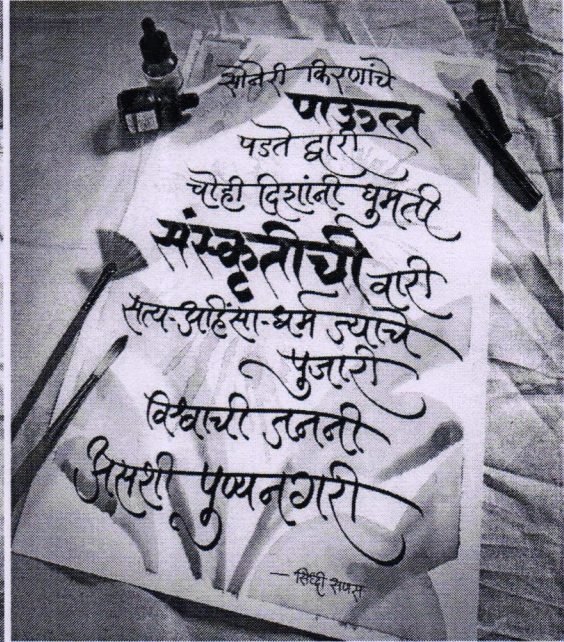 सोनेरी किरणांचे
पाऊल
पडते द्वारी
चोही दिशांनी घुमती
संस्कृतीची वारी
सत्य-अहिंसा-धर्म ज्याचे
पुजारी
विश्वाची जननी
अशी पुण्यनगरी
- सिध्दी